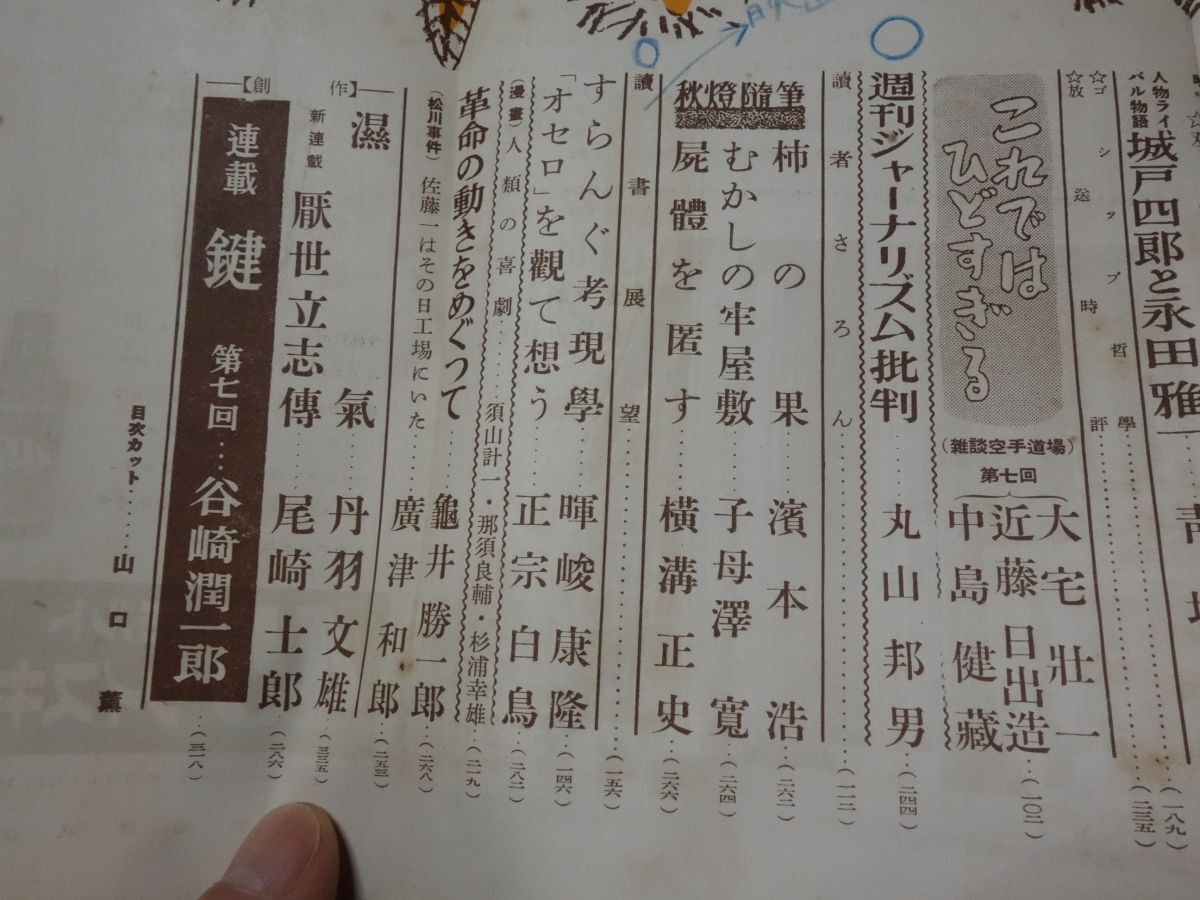 人物ライバル物語 城戸四郎と永田雅一……(一八九)
☆ゴシップ哲學……(二三五)
☆放送時評
これではひどすぎる
(雑談空手道場)
第七回
大宅壯一
近藤日出造
中島健藏
(一〇二)
週刊ジャーナリズム批判……丸山邦男(二四四)
讀者さろん……(一一二)
秋燈隨筆
柿の果……濱本浩(二六二)
むかしの牢屋敷……子母澤寬(二六四)
屍體を匿す……横溝正史(二六六)
讀書展望……(一五六)
すらんぐ考現學……暉峻康隆(一四六)
「オセロ」を觀て想う……正宗白鳥(二八二)
(漫畫)人類の喜劇……須山計一・那須良輔・杉浦幸雄(二一九)
革命の動きをめぐつて……龜井勝一郎(二六八)
(松川事件)佐藤一はその日工場にいた……廣津和郎(二五三)
【創作】
濕氣……丹羽文雄(三三五)
新連載 厭世立志傳……尾崎士郎(二八六)
連載 鍵 第七回……谷崎潤一郎(三一八)
目次カット……山口薫